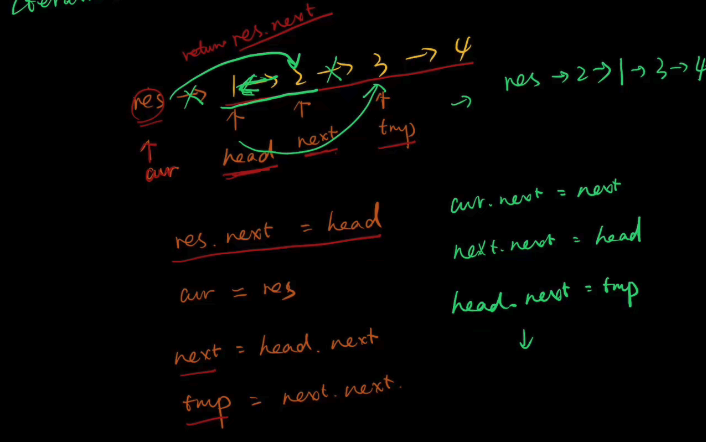 return res.next
res → 1 → 2 → 3 → 4
→ res → 2 → 1 → 3 → 4
cur
head
next
tmp
res.next = head
cur = res
next = head.next
tmp = next.next.
cur.next = next
next.next = head
head.next = tmp
↓